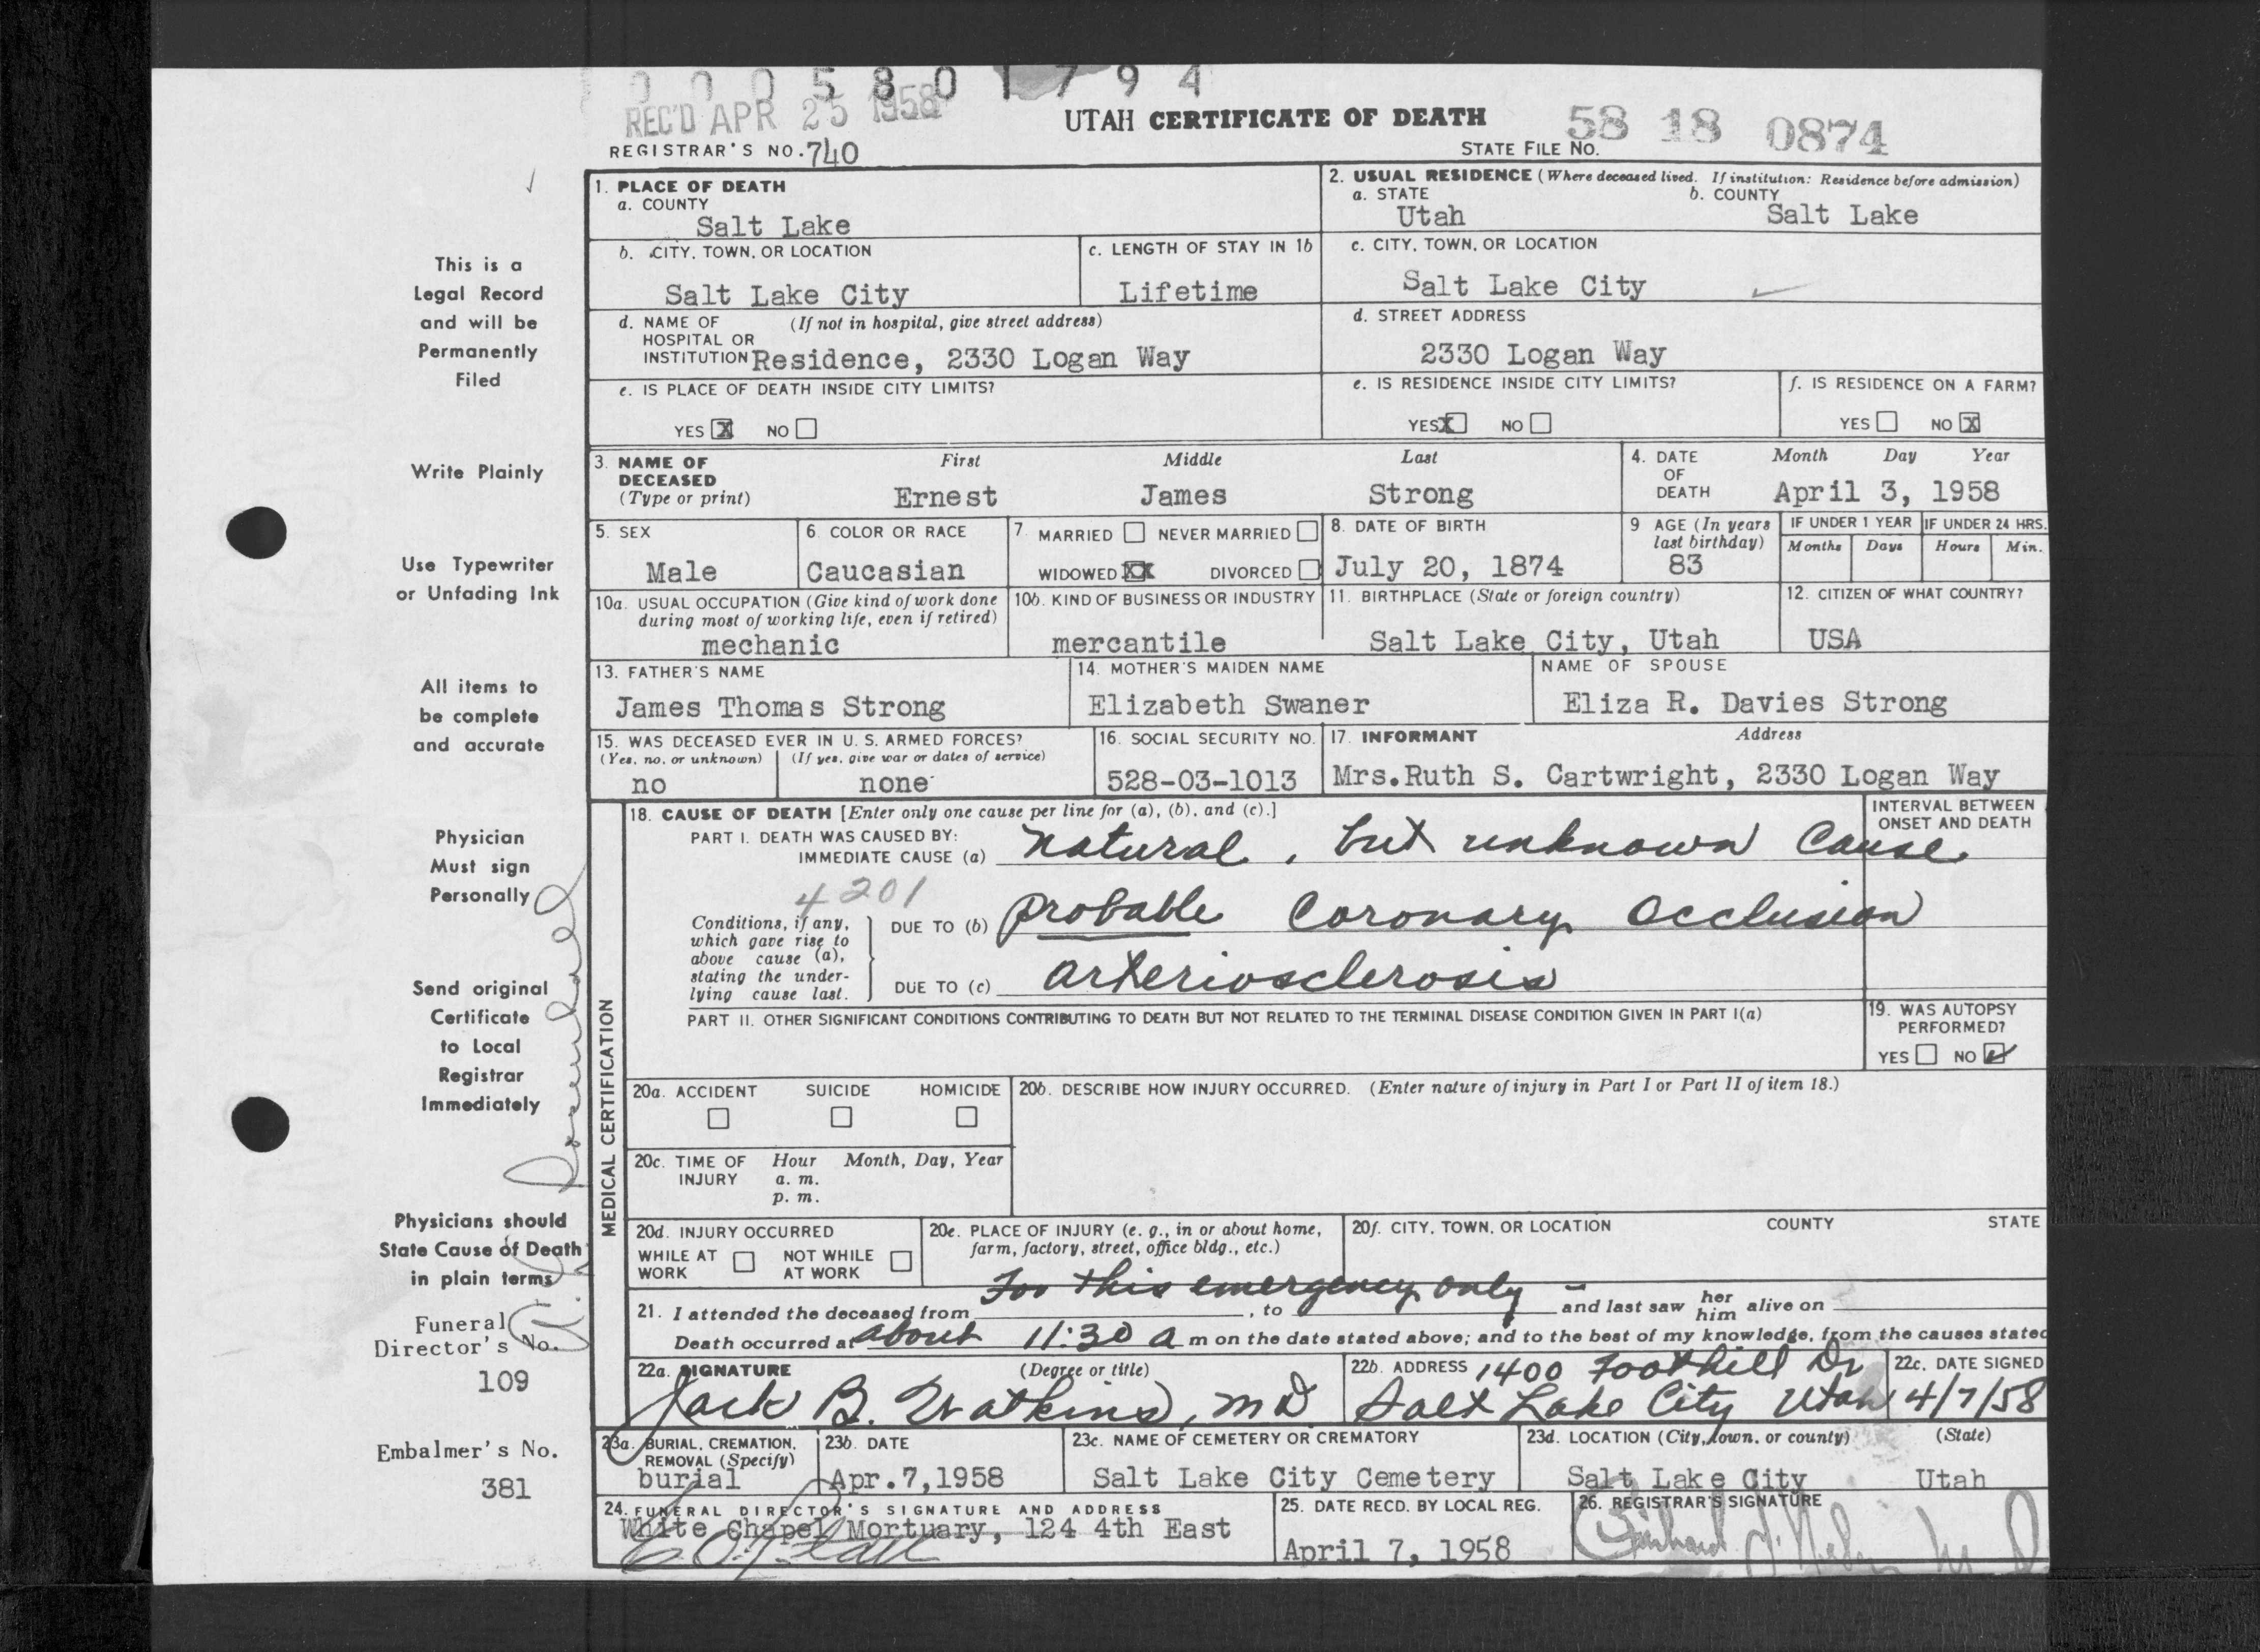 0 0 0 5 8 0 1 7 9 4
REC'D APR 25 1958
UTAH CERTIFICATE OF DEATH
58 18 0874
REGISTRAR'S NO. 740
STATE FILE NO.
This is a
Legal Record
and will be
Permanently
Filed
Write Plainly
Use Typewriter
or Unfading Ink
All items to
be complete
and accurate
Physician
Must sign
Personally
Send original
Certificate
to Local
Registrar
Immediately
Physicians should
State Cause of Death
in plain terms
Funeral
Director's No.
109
Embalmer's No.
381
1. PLACE OF DEATH
a. COUNTY
Salt Lake
2. USUAL RESIDENCE (Where deceased lived. If institution: Residence before admission)
a. STATE b. COUNTY
Utah Salt Lake
b. CITY, TOWN, OR LOCATION
Salt Lake City
c. LENGTH OF STAY IN 1b
Lifetime
c. CITY, TOWN, OR LOCATION
Salt Lake City
d. NAME OF (If not in hospital, give street address)
HOSPITAL OR
INSTITUTION Residence, 2330 Logan Way
d. STREET ADDRESS
2330 Logan Way
e. IS PLACE OF DEATH INSIDE CITY LIMITS?
YES X NO
e. IS RESIDENCE INSIDE CITY LIMITS?
YES X NO
f. IS RESIDENCE ON A FARM?
YES NO X
3. NAME OF DECEASED (Type or print)
First Middle Last
Ernest James Strong
4. DATE OF DEATH
Month Day Year
April 3, 1958
5. SEX
Male
6. COLOR OR RACE
Caucasian
7 MARRIED NEVER MARRIED
WIDOWED XX DIVORCED
8. DATE OF BIRTH
July 20, 1874
9 AGE (In years last birthday)
83
IF UNDER 1 YEAR IF UNDER 24 HRS.
Months Days Hours Min.
10a. USUAL OCCUPATION (Give kind of work done
during most of working life, even if retired)
mechanic
10b. KIND OF BUSINESS OR INDUSTRY
mercantile
11. BIRTHPLACE (State or foreign country)
Salt Lake City, Utah
12. CITIZEN OF WHAT COUNTRY?
USA
13. FATHER'S NAME
James Thomas Strong
14. MOTHER'S MAIDEN NAME
Elizabeth Swaner
NAME OF SPOUSE
Eliza R. Davies Strong
15. WAS DECEASED EVER IN U. S. ARMED FORCES?
(Yes, no, or unknown) (If yes, give war or dates of service)
no none
16. SOCIAL SECURITY NO.
528-03-1013
17. INFORMANT Address
Mrs.Ruth S. Cartwright, 2330 Logan Way
MEDICAL CERTIFICATION
18. CAUSE OF DEATH [Enter only one cause per line for (a), (b), and (c).]
INTERVAL BETWEEN
ONSET AND DEATH
PART I. DEATH WAS CAUSED BY:
IMMEDIATE CAUSE (a) Natural, but unknown Cause
4201
Conditions, if any,
which gave rise to
above cause (a),
stating the under-
lying cause last.
DUE TO (b) probable Coronary Occlusion
DUE TO (c) arteriosclerosis
PART II. OTHER SIGNIFICANT CONDITIONS CONTRIBUTING TO DEATH BUT NOT RELATED TO THE TERMINAL DISEASE CONDITION GIVEN IN PART I(a)
19. WAS AUTOPSY
PERFORMED?
YES NO ✓
20a. ACCIDENT SUICIDE HOMICIDE
20b. DESCRIBE HOW INJURY OCCURRED. (Enter nature of injury in Part I or Part II of item 18.)
20c. TIME OF INJURY
Hour Month, Day, Year
a. m.
p. m.
20d. INJURY OCCURRED
WHILE AT WORK NOT WHILE AT WORK
20e. PLACE OF INJURY (e. g., in or about home,
farm, factory, street, office bldg., etc.)
20f. CITY, TOWN, OR LOCATION COUNTY STATE
For this emergency only
21. I attended the deceased from , to and last saw her him alive on
Death occurred at about 11:30 a m on the date stated above; and to the best of my knowledge, from the causes stated
22a. SIGNATURE (Degree or title)
Jack B. Watkins, MD
22b. ADDRESS 1400 Foothill Dr
Salt Lake City Utah
22c. DATE SIGNED
4/7/58
23a. BURIAL, CREMATION,
REMOVAL (Specify)
burial
23b. DATE
Apr.7,1958
23c. NAME OF CEMETERY OR CREMATORY
Salt Lake City Cemetery
23d. LOCATION (City, town, or county) (State)
Salt Lake City Utah
24. FUNERAL DIRECTOR'S SIGNATURE AND ADDRESS
White Chapel Mortuary, 124 4th East
25. DATE RECD. BY LOCAL REG.
April 7, 1958
26. REGISTRAR'S SIGNATURE